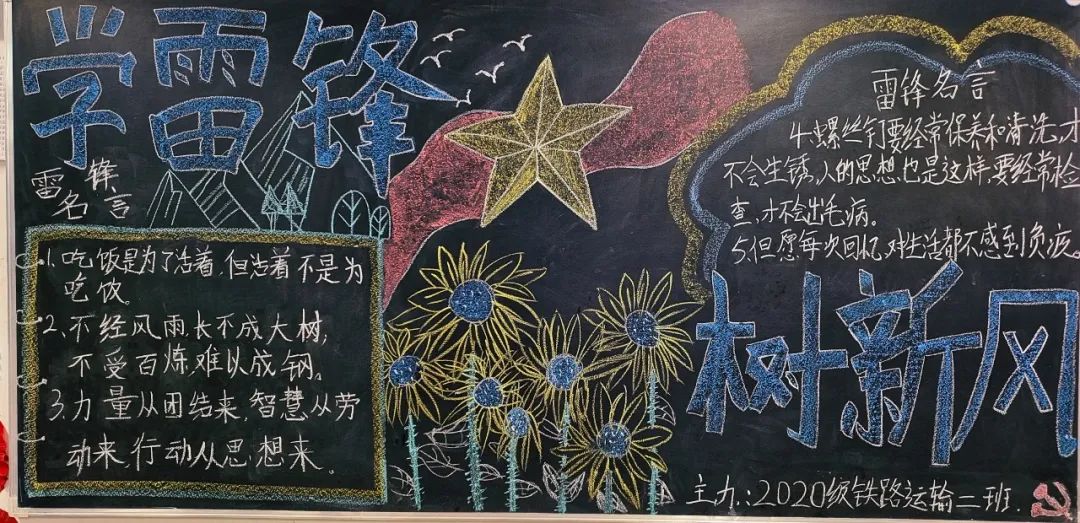 学雷锋
雷锋
名言
1.吃饭是为了活着,但活着不是为
吃饭。
2、不经风雨,长不成大树;
不受百炼,难以成钢。
3.力量从团结来,智慧从劳
动来,行动从思想来.
雷锋名言
4.螺丝钉要经常保养和清洗,才
不会生锈,人的思想也是这样,要经常检
查,才不会出毛病。
5.但愿每次回忆,对生活都不感到负疚。
树新风
主力:2020级铁路运输二班.